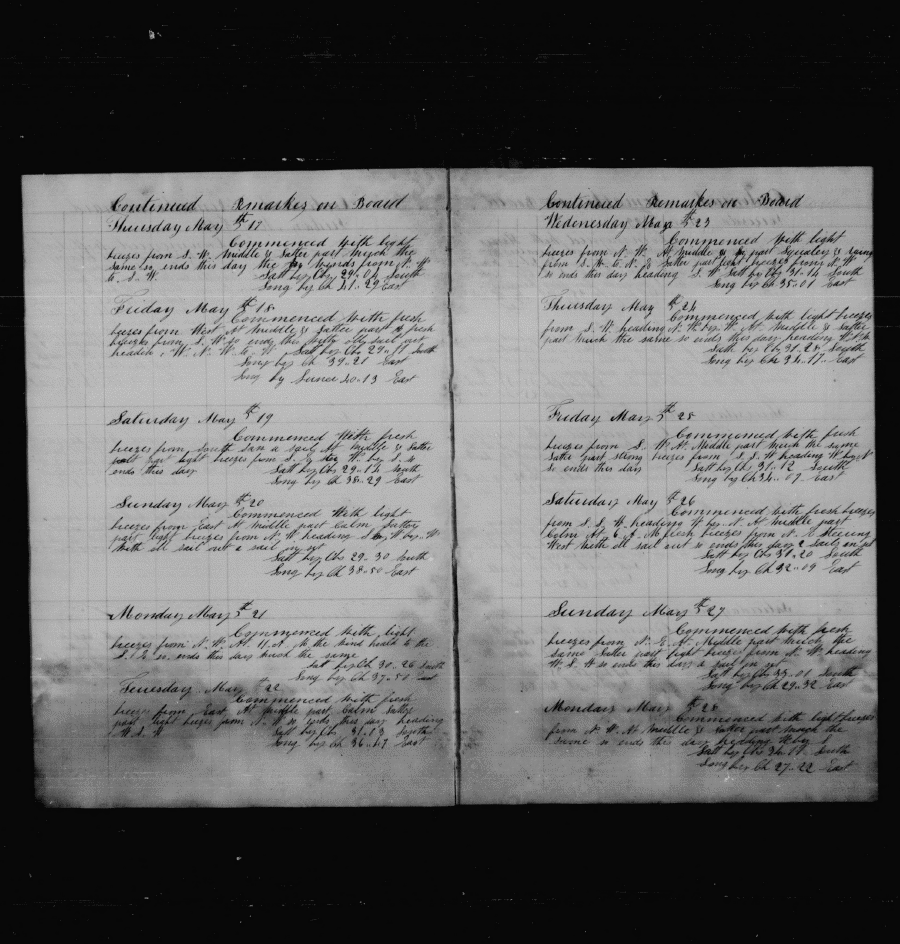 Continued Remarks on Board
Thursday May th 17
Commenced with light
breezes from S. W. Middle & Latter part much the
same so ends this day the winds from N W
W. S. W. Latt by Obs 29..04 South
Long by Ch 41..29 East
Friday May th 18
Commenced with fresh
breezes from West At Middle & Latter part fresh
breezes from S. W so ends this day all sail out
heading W. N. W Latt by Obs 29..17 South
Long by Ch 39..21 East
Long by Lunar 40..13 East
Saturday May th 19
Commenced With fresh
breezes from South Saw a sail At Middle & Latter
part light breezes from S. W. by S. so
ends this day Latt by Obs 29..14 South
Long by Ch 38..29 East
Sunday May th 20
Commenced With light
breezes from East At Middle part Calm Latter
part light breezes from N. W heading W by W
With all sail out a sail in set
Latt by Obs 29..30 South
Long by Ch 38..50 East
Monday May th 21
Commenced with light
breezes from N. W. At the wind hauld to the
S. E so ends this day much the same
Lat by Ch 30..26 South
Long by Ch 37..51 East
Tuesday May 22
Commenced with fresh
breezes from East At Middle part Calm Latter
part light breezes from N. W so ends this day heading
W S. W Latt by Obs 31..13 South
Long by Ch 36..47 East
Continued Remarks on Board
Wednesday May th 23
Commenced With light
breezes from N. W. At Middle part Squaley &
from S. W. Latter part light breezes from N W
so ends this day heading S. W Latt by Obs 31..14 South
Long by Ch 35..01 East
Thursday May th 24
Commenced With light breezes
from S. W. heading N. W. by W. At Middle & Latter
part much the same so ends this day heading
Latt by Obs 31..28 South
Long by Ch 34..17 East
Friday May th 25
Commenced with fresh
breezes from S. W. At Middle part much the same
Latter part strong breezes from S. S. W heading W by N
so ends this day Latt by Obs 31..12 South
Long by Ch 34..07 East
Saturday May th 26
Commenced with fresh breezes
from S. S. W. heading W by N. At middle part
Calm At 6 A. M fresh breezes from N. E Steering
West With all sail out so ends this day 2 Sails in set
Latt by Obs 31..20 South
Long by Ch 32..09 East
Sunday May th 27
Commenced with fresh
breezes from N. E. At Middle part much the
same Latter part light breezes from N. W heading
W. S. W so ends this day a sail in set
Latt by Obs 33..01 South
Long by Ch 29..32 East
Monday May th 28
Commenced with light breezes
from N. W. At Middle & Latter part much the
same so ends this day heading W by
Latt by Obs 34..11 South
Long by Ch 27..22 East